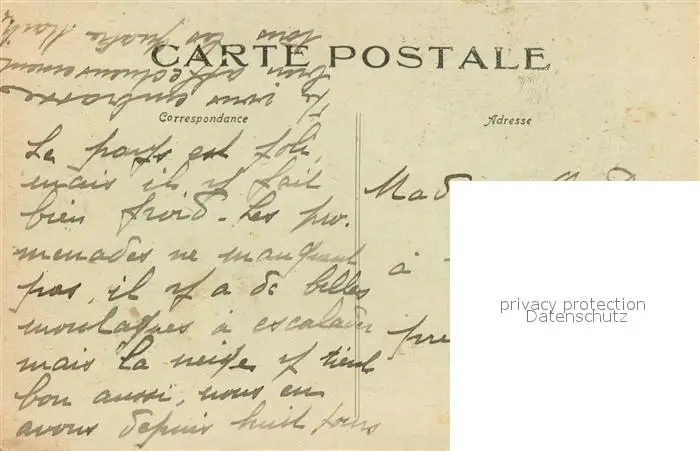 CARTE POSTALE
Correspondance
Adresse
Le pays est joli,
mais il y fait
bien froid. Les pro-
menades ne manquent
pas, il y a de belles
montagnes à escalader
mais la neige y tient
bon aussi, nous en
avons depuis huit jours
Je vous embrasse
bien affectueusement
tous les quatre
Mad
à
pre
privacy protection
Datenschutz